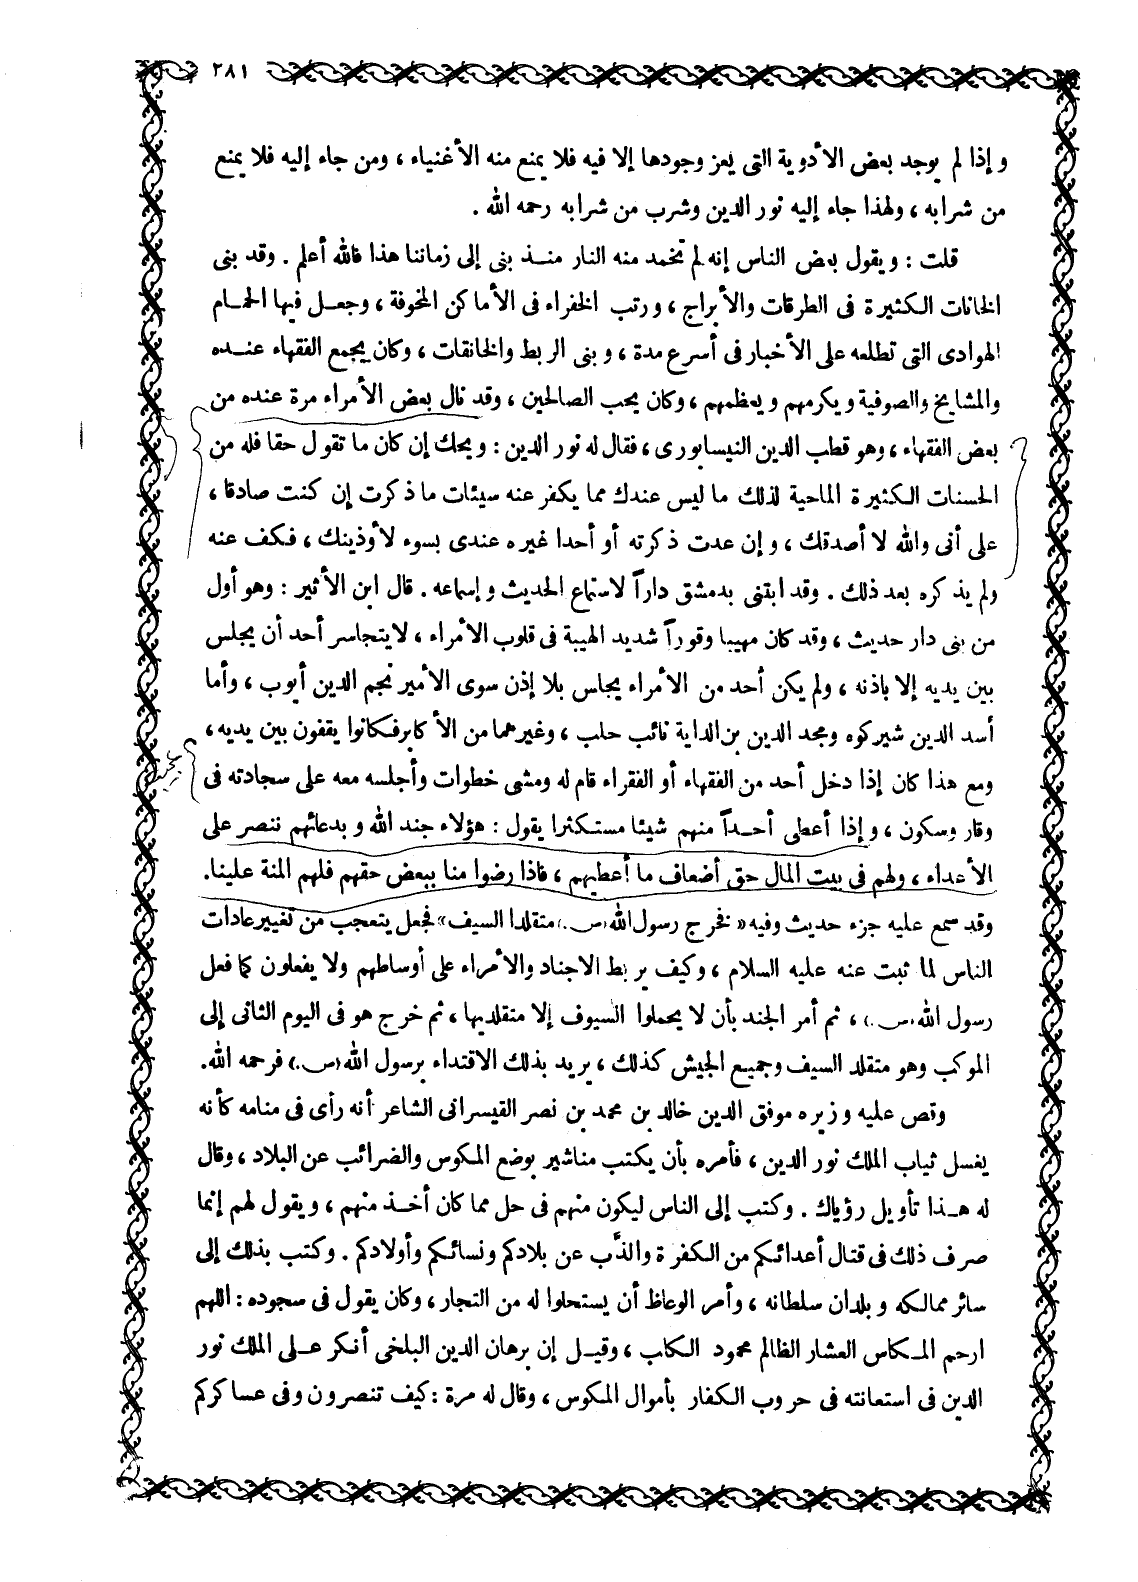 ٢٨١
و إذا لم يوجد بعض الأدوية التى يعز وجودها إلا فيه فلا يمنع منه الأغنياء ، ومن جاء إليه فلا يمنع
من شرابه ، ولهذا جاء إليه نور الدين وشرب من شرابه رحمه الله .
قلت : ويقول بعض الناس إنه لم تخمد منه النار منذ بنى إلى زماننا هذا فالله أعلم . وقد بنى
الخانات الكثيرة فى الطرقات والأبراج ، ورتب الخفراء فى الأماكن المخوفة ، وجعل فيها الحمام
الهوادى التى تطلعه على الأخبار فى أسرع مدة ، وبنى الربط والخانقات ، وكان يجمع الفقهاء عنده
والمشايخ والصوفية ويكرمهم ويعظمهم ، وكان يحب الصالحين ، وقد نال بعض الأمراء مرة عنده من
بعض الفقهاء ، وهو قطب الدين النيسابورى ، فقال له نور الدين : ويحك إن كان ما تقول حقا فله من
الحسنات الكثيرة الماحية لذلك ما ليس عندك مما يكفر عنه سيئات ما ذكرت إن كنت صادقا ،
على أنى والله لا أصدقك ، و إن عدت ذكرته أو أحدا غيره عندى بسوء لأوذينك ، فكف عنه
ولم يذكره بعد ذلك . وقد ابقنى بدمشق داراً لاستماع الحديث و إسماعه . قال ابن الأثير : وهو أول
من بنى دار حديث ، وقد كان مهيبا وقوراً شديد الهيبة فى قلوب الأمراء ، لايتجاسر أحد أن يجلس
بين يديه إلا باذنه ، ولم يكن أحد من الأمراء يجلس بلا إذن سوى الأمير نجم الدين أيوب ، وأما
أسد الدين شيركوه ومجد الدين بن الداية نائب حلب ، وغيرهما من الأكابر فكانوا يقفون بين يديه ،
ومع هذا كان إذا دخل أحد من الفقهاء أو الفقراء قام له ومشى خطوات وأجلسه معه على سجادته فى
وقار وسكون ، و إذا أعطى أحداً منهم شيئا مستكثرا يقول : هؤلاء جند الله و بدعائهم ننصر على
الأعداء ، ولهم فى بيت المال حق أضعاف ما أعطيهم ، فاذا رضوا منا ببعض حقهم فلهم المنة علينا.
وقد سمع عليه جزء حديث وفيه « فخرج رسول الله (س.) متقلدا السيف » فجعل يتعجب من تغيير عادات
الناس لما ثبت عنه عليه السلام ، وكيف يربط الاجناد والأمراء على أوساطهم ولا يفعلون كما فعل
رسول الله (س.) ، ثم أمر الجند بأن لا يحملوا السيوف إلا متقلديها ، ثم خرج هو فى اليوم الثانى إلى
الموكب وهو متقلد السيف وجميع الجيش كذلك ، يريد بذلك الاقتداء برسول الله (س.) فرحمه الله.
وقص عليه وزيره موفق الدين خالد بن محمد بن نصر القيسرانى الشاعر أنه رأى فى منامه كأنه
يغسل ثياب الملك نور الدين ، فأمره بأن يكتب مناشير بوضع المكوس والضرائب عن البلاد ، وقال
له هذا تأويل رؤياك . وكتب إلى الناس ليكون منهم فى حل مما كان أخذ منهم ، ويقول لهم إنما
صرف ذلك فى قتال أعدائكم من الكفرة والذب عن بلادكم ونسائكم وأولادكم . وكتب بذلك إلى
سائر ممالكه و بلدان سلطانه ، وأمر الوعاظ أن يستحلوا له من التجار ، وكان يقول فى سجوده : اللهم
ارحم المكاس العشار الظالم محمود الكلب ، وقيل إن برهان الدين البلخى أنكر على الملك نور
الدين فى استعانته فى حروب الكفار بأموال المكوس ، وقال له مرة : كيف تنصرون وفى عساكركم